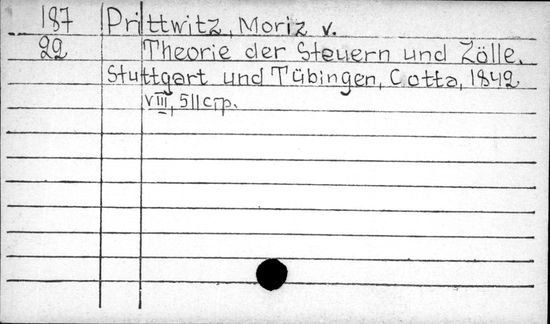 187 Prittwitz, Moriz v.
22 Theorie der Steuern und Zölle.
Stuttgart und Tübingen, Cotta, 1842
VIII, 511 стр.